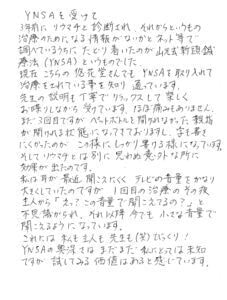 YNSAを受けて
3年前に、リウマチと診断され、それからというもの
治療のためになる情報がないかとネット等で
調べているうちに、たどり着いたのが山元式新頭鍼
療法(YNSA)というものでした。
現在こちらの悠花堂さんでもYNSAを取り入れて
治療をされている事を知り通っています。
先生の説明も丁寧でリラックスして楽しく
お喋りしながら受けています。ほぼ痛みもありません。
まだ3回目ですが、ペットボトルを開られなかった親指
が開られる状態になってきておりますし、字も書き
にくかったのが、この様に、しっかり書ける様になっています。
そしてリウマチとは別に思わぬ意外な所に
効果が出たのです。
私は耳が最近聞こえにくくテレビの音量をかなり
大きくしていたのですが1回目の治療のその夜、
主人から「え?この音量で聞こえてるの?」と
不思議がられ、それ以降今でも小さな音量で
聞こえるようになっています。
これには私も主人も先生も(笑)びっくり!
YNSAの奥深さはまだまだ私にとっては未知
ですが試してみる価値はあると感じています。